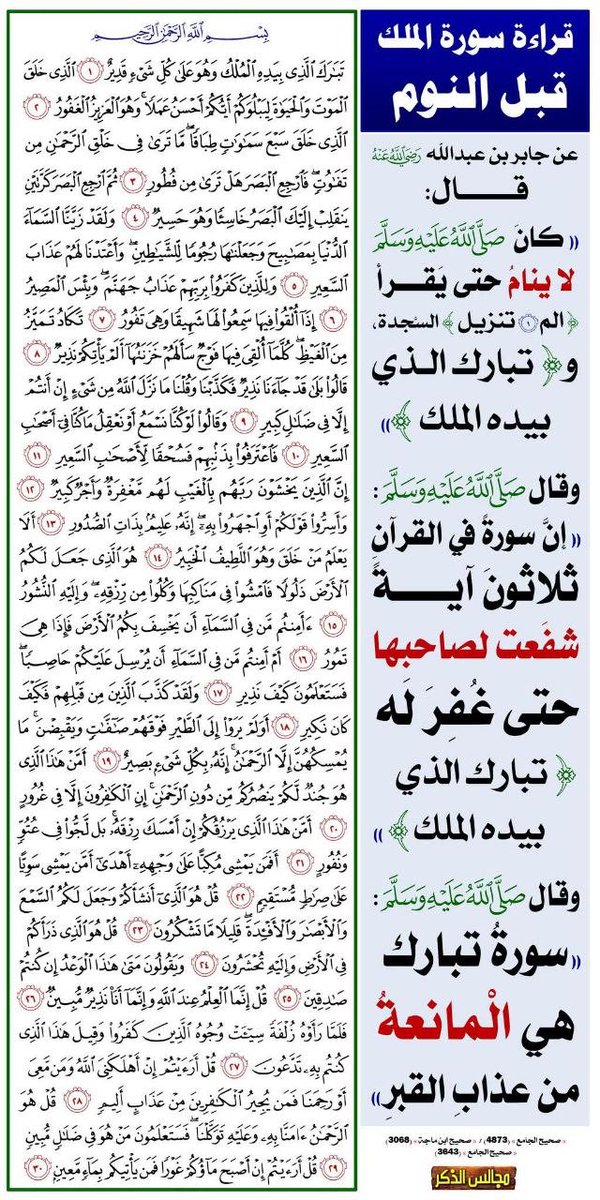 قراءة سورة الملك
قبل النوم
عن جابر بن عبدالله رضي الله عنه
قــال:
«كانَ صَلَّى اللَّهُ عَلَيْهِ وَسَلَّمَ
لا ينامُ حتى يَقرأ
﴿الم ١ تنزيل﴾ السجدة،
و﴿تبارك الذي
بيده الملك﴾»
وقال صَلَّى اللَّهُ عَلَيْهِ وَسَلَّمَ:
«إنَّ سورةً في القرآن
ثلاثونَ آيــةً
شفَعت لصاحبها
حتى غُفِرَ لَه
﴿تبارك الذي
بيده الملك﴾»
وقال صَلَّى اللَّهُ عَلَيْهِ وَسَلَّمَ:
«سورةُ تبارك
هي الْمانعةُ
من عذابِ القبرِ»
* صحيح الجامع * (4873) / * صحيح ابن ماجة * (3068)
* صحيح الجامع * (3643)
مجالس الذكر
بِسْمِ اللَّهِ الرَّحْمَٰنِ الرَّحِيمِ
تَبَارَكَ ٱلَّذِي بِيَدِهِ ٱلْمُلْكُ وَهُوَ عَلَىٰ كُلِّ شَيْءٍ قَدِيرٌ ١ ٱلَّذِي خَلَقَ
ٱلْمَوْتَ وَٱلْحَيَوٰةَ لِيَبْلُوَكُمْ أَيُّكُمْ أَحْسَنُ عَمَلًا ۚ وَهُوَ ٱلْعَزِيزُ ٱلْغَفُورُ ٢
ٱلَّذِي خَلَقَ سَبْعَ سَمَٰوَٰتٍ طِبَاقًا ۖ مَّا تَرَىٰ فِي خَلْقِ ٱلرَّحْمَٰنِ مِن
تَفَٰوُتٍ ۖ فَٱرْجِعِ ٱلْبَصَرَ هَلْ تَرَىٰ مِن فُطُورٍ ٣ ثُمَّ ٱرْجِعِ ٱلْبَصَرَ كَرَّتَيْنِ
يَنقَلِبْ إِلَيْكَ ٱلْبَصَرُ خَاسِئًا وَهُوَ حَسِيرٌ ٤ وَلَقَدْ زَيَّنَّا ٱلسَّمَآءَ
ٱلدُّنْيَا بِمَصَٰبِيحَ وَجَعَلْنَٰهَا رُجُومًا لِّلشَّيَٰطِينِ ۖ وَأَعْتَدْنَا لَهُمْ عَذَابَ
ٱلسَّعِيرِ ٥ وَلِلَّذِينَ كَفَرُوا۟ بِرَبِّهِمْ عَذَابُ جَهَنَّمَ ۖ وَبِئْسَ ٱلْمَصِيرُ
٦ إِذَآ أُلْقُوا۟ فِيهَا سَمِعُوا۟ لَهَا شَهِيقًا وَهِيَ تَفُورُ ٧ تَكَادُ تَمَيَّزُ
مِنَ ٱلْغَيْظِ ۖ كُلَّمَآ أُلْقِيَ فِيهَا فَوْجٌ سَأَلَهُمْ خَزَنَتُهَآ أَلَمْ يَأْتِكُمْ نَذِيرٌ ٨
قَالُوا۟ بَلَىٰ قَدْ جَآءَنَا نَذِيرٌ فَكَذَّبْنَا وَقُلْنَا مَا نَزَّلَ ٱللَّهُ مِن شَيْءٍ إِنْ أَنتُمْ
إِلَّا فِي ضَلَٰلٍ كَبِيرٍ ٩ وَقَالُوا۟ لَوْ كُنَّا نَسْمَعُ أَوْ نَعْقِلُ مَا كُنَّا فِيٓ أَصْحَٰبِ
ٱلسَّعِيرِ ١٠ فَٱعْتَرَفُوا۟ بِذَنۢبِهِمْ فَسُحْقًا لِّأَصْحَٰبِ ٱلسَّعِيرِ ١١
إِنَّ ٱلَّذِينَ يَخْشَوْنَ رَبَّهُم بِٱلْغَيْبِ لَهُم مَّغْفِرَةٌ وَأَجْرٌ كَبِيرٌ ١٢
وَأَسِرُّوا۟ قَوْلَكُمْ أَوِ ٱجْهَرُوا۟ بِهِۦٓ ۖ إِنَّهُۥ عَلِيمٌۢ بِذَاتِ ٱلصُّدُورِ ١٣ أَلَا
يَعْلَمُ مَنْ خَلَقَ وَهُوَ ٱللَّطِيفُ ٱلْخَبِيرُ ١٤ هُوَ ٱلَّذِي جَعَلَ لَكُمُ
ٱلْأَرْضَ ذَلُولًا فَٱمْشُوا۟ فِي مَنَاكِبِهَا وَكُلُوا۟ مِن رِّزْقِهِۦ ۖ وَإِلَيْهِ ٱلنُّشُورُ
١٥ ءَأَمِنتُم مَّن فِي ٱلسَّمَآءِ أَن يَخْسِفَ بِكُمُ ٱلْأَرْضَ فَإِذَا هِيَ
تَمُورُ ١٦ أَمْ أَمِنتُم مَّن فِي ٱلسَّمَآءِ أَن يُرْسِلَ عَلَيْكُمْ حَاصِبًا ۖ
فَسَتَعْلَمُونَ كَيْفَ نَذِيرِ ١٧ وَلَقَدْ كَذَّبَ ٱلَّذِينَ مِن قَبْلِهِمْ فَكَيْفَ
كَانَ نَكِيرِ ١٨ أَوَلَمْ يَرَوْا۟ إِلَى ٱلطَّيْرِ فَوْقَهُمْ صَٰٓفَّٰتٍ وَيَقْبِضْنَ ۚ مَا
يُمْسِكُهُنَّ إِلَّا ٱلرَّحْمَٰنُ ۚ إِنَّهُۥ بِكُلِّ شَيْءٍۭ بَصِيرٌ ١٩ أَمَّنْ هَٰذَا ٱلَّذِي
هُوَ جُندٌ لَّكُمْ يَنصُرُكُم مِّن دُونِ ٱلرَّحْمَٰنِ ۚ إِنِ ٱلْكَٰفِرُونَ إِلَّا فِي غُرُورٍ
٢٠ أَمَّنْ هَٰذَا ٱلَّذِي يَرْزُقُكُمْ إِنْ أَمْسَكَ رِزْقَهُۥ ۚ بَل لَّجُّوا۟ فِي عُتُوٍّ
وَنُفُورٍ ٢١ أَفَمَن يَمْشِي مُكِبًّا عَلَىٰ وَجْهِهِۦٓ أَهْدَىٰٓ أَمَّن يَمْشِي سَوِيًّا
عَلَىٰ صِرَٰطٍ مُّسْتَقِيمٍ ٢٢ قُلْ هُوَ ٱلَّذِيٓ أَنشَأَكُمْ وَجَعَلَ لَكُمُ ٱلسَّمْعَ
وَٱلْأَبْصَٰرَ وَٱلْأَفْـِٔدَةَ ۖ قَلِيلًا مَّا تَشْكُرُونَ ٢٣ قُلْ هُوَ ٱلَّذِي ذَرَأَكُمْ
فِي ٱلْأَرْضِ وَإِلَيْهِ تُحْشَرُونَ ٢٤ وَيَقُولُونَ مَتَىٰ هَٰذَا ٱلْوَعْدُ إِن كُنتُمْ
صَٰدِقِينَ ٢٥ قُلْ إِنَّمَا ٱلْعِلْمُ عِندَ ٱللَّهِ وَإِنَّمَآ أَنَا۠ نَذِيرٌ مُّبِينٌ ٢٦
فَلَمَّا رَأَوْهُ زُلْفَةً سِيٓـَٔتْ وُجُوهُ ٱلَّذِينَ كَفَرُوا۟ وَقِيلَ هَٰذَا ٱلَّذِي
كُنتُم بِهِۦ تَدَّعُونَ ٢٧ قُلْ أَرَءَيْتُمْ إِنْ أَهْلَكَنِيَ ٱللَّهُ وَمَن مَّعِيَ
أَوْ رَحِمَنَا فَمَن يُجِيرُ ٱلْكَٰفِرِينَ مِنْ عَذَابٍ أَلِيمٍ ٢٨ قُلْ هُوَ
ٱلرَّحْمَٰنُ ءَامَنَّا بِهِۦ وَعَلَيْهِ تَوَكَّلْنَا ۖ فَسَتَعْلَمُونَ مَنْ هُوَ فِي ضَلَٰلٍ مُّبِينٍ
٢٩ قُلْ أَرَءَيْتُمْ إِنْ أَصْبَحَ مَآؤُكُمْ غَوْرًا فَمَن يَأْتِيكُم بِمَآءٍ مَّعِينٍۭ ٣٠